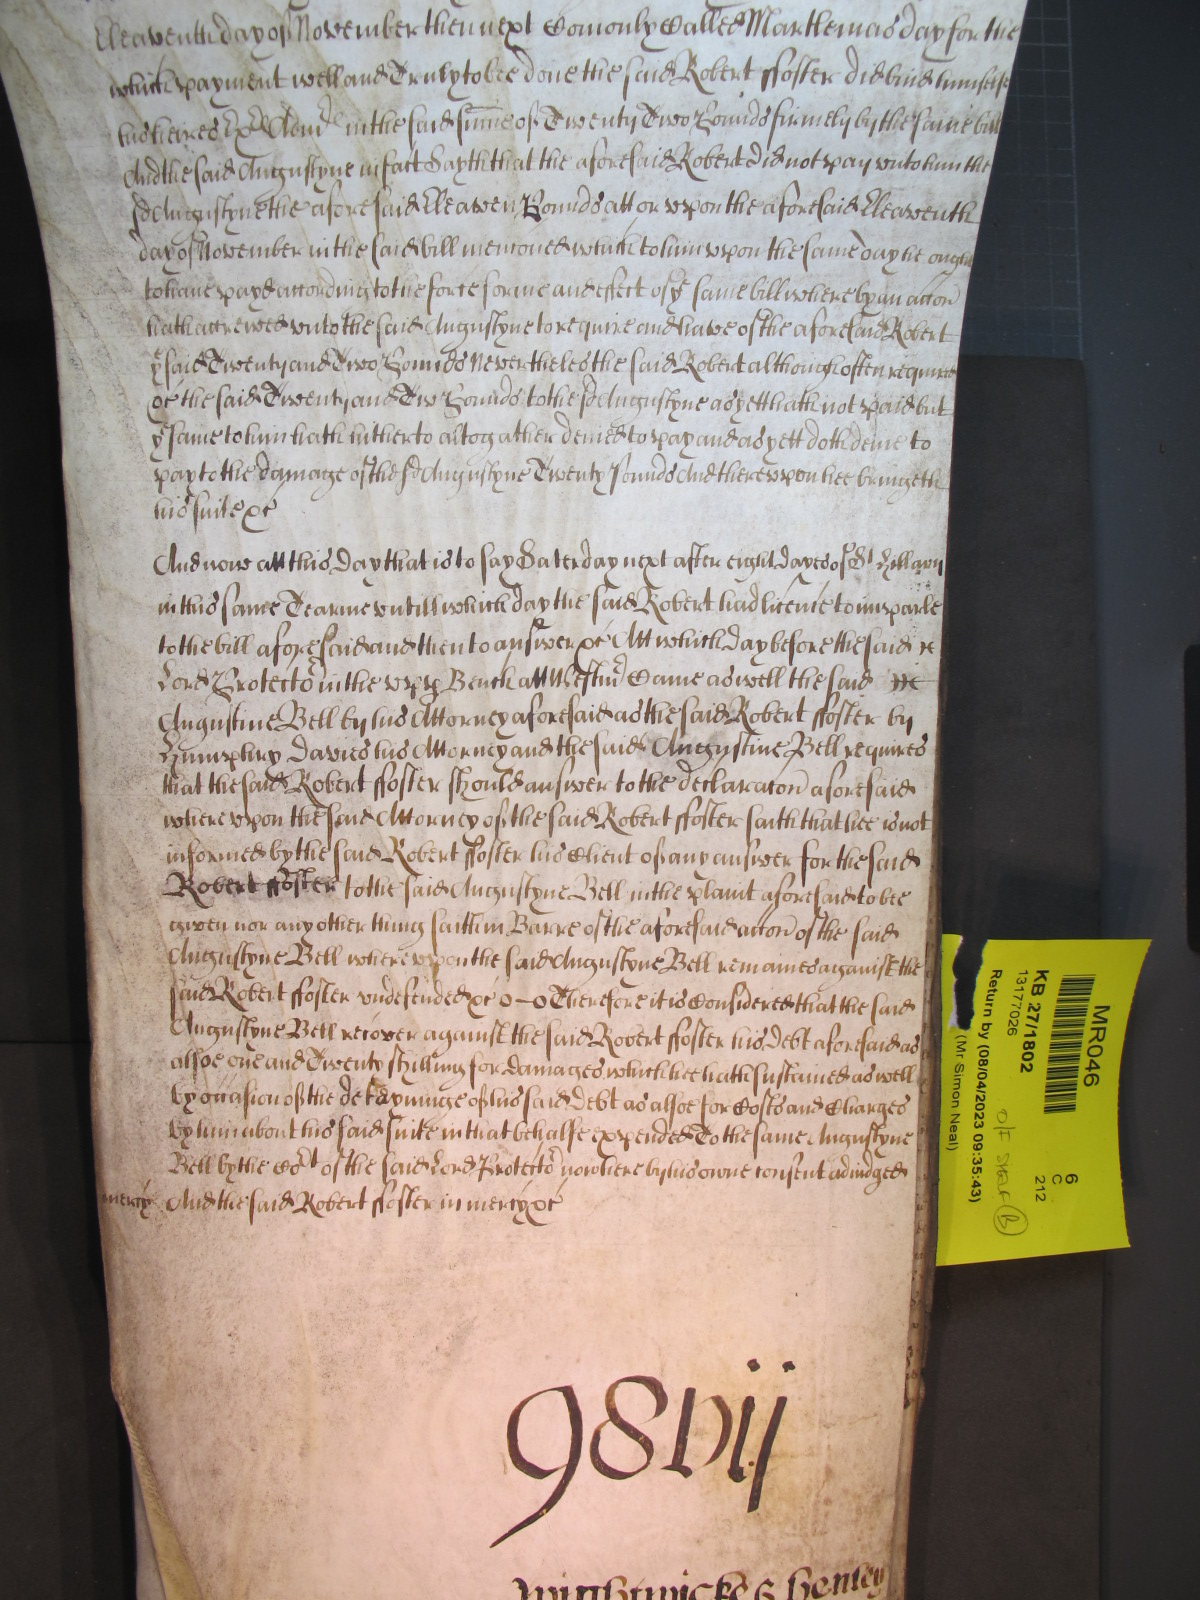 Eleaventh day of November then next Comonly Called Martlemas day for the
which payment well and Truly to bee done the said Robert ffoster did bind himselfe
his heires Exrs Admrs in the said sume of Twenty Two Pounds firmely by the same bill
And the said Augustyne in fact Sayth that the aforesaid Robert did not pay unto him the
sd Augustyne the aforesaid Eleaven Pounds att or upon the aforesaid Eleaventh
day of November in the said bill menconed which to him upon the same day he ought
to have payd according to the force forme and effect of ye same bill whereby an accon
hath accrewed unto the said Augustyne to require and have of the aforesaid Robert
ye said Twenty and Two Pounds Nevertheles the said Robert although often required
&c the said Twenty and Two Pounds to the sd Augustyne as yett hath not paid but
ye same to him hath hitherto altogather denied to pay and as yett doth denie to
pay to the damage of the sd Augustyne Twenty Pounds And thereupon hee bringeth
his suite &c
And now att this Day that is to say Saterday next after eight dayes of St Hillary
in this same Tearme untill which day the said Robert had licence to imparle
to the bill aforesaid and then to answer &c Att which Day before the said
Lord Protector in the upp Bench att Westmr Came as well the said
Augustine Bell by his Attorney aforesaid as the said Robert ffoster by
Humphry Davies his Attorney and the said Augustine Bell requires
that the said Robert ffoster should answer to the declaracon aforesaid
whereupon the said Attorney of the said Robert ffoster saith that hee is not
informed by the said Robert ffoster his Client of any answer for the said
Robert ffoster to the said Augustyne Bell in the plaint aforesaid to bee
given nor any other thing saith in Barre of the aforesaid accon of the said
Augustyne Bell whereupon the said Augustyne Bell remaines against the
said Robert ffoster undefended &c o-o Therefore it is Considered that the said
Augustyne Bell recover against the said Robert ffoster his Debt aforesaid as
alsoe one and Twenty shilling for damages which hee hath sustained as well
by occasion of the detayninge of his said Debt as alsoe for Costs and Charges
by him about his said suite in that behalfe expended To the same Augustyne
Bell by the Cort of the said Lord Protector now here by his owne consent adiudged
mercy And the said Robert ffoster in mercy &c
98 vij
Wightwicke & Henley
MR046
6
C
212
KB 27/1802
13177026
Return by (08/04/2023 09:35:43)
(Mr Simon Neal)
O/F
B